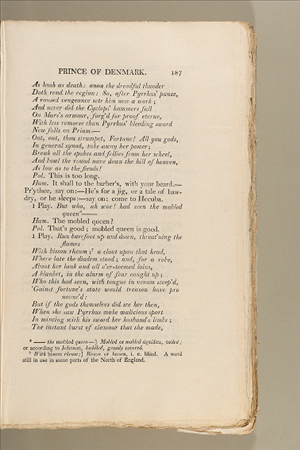 PRINCE OF DENMARK. 187
As hush as death: anon the dreadful thunder
Doth rend the region: So, after Pyrrhus' pause,
A roused vengeance sets him new a work;
And never did the Cyclops' hammers fall
On Mars's armour, forg'd for proof eterne,
With less remorse than Pyrrhus' bleeding sword
Now falls on Priam.—
Out, out, thou strumpet, Fortune! All you gods,
In general synod, take away her power;
Break all the spokes and fellies from her wheel,
And bowl the round nave down the hill of heaven,
As low as to the fiends!
Pol. This is too long.
Ham. It shall to the barber's, with your beard.—
Pr'ythee, say on:—He's for a jig, or a tale of baw-
dry, or he sleeps:—say on: come to Hecuba.
1 Play. But who, ah woe! had seen the mobled
queen*——
Ham. The mobled queen?
Pol. That's good; mobled queen is good.
1 Play. Run barefoot up and down, threat'ning the
flames
With bisson rheum;† a clout upon that head,
Where late the diadem stood; and, for a robe,
About her lank and all o'er-teemed loins,
A blanket, in the alarm of fear caught up;
Who this had seen, with tongue in venom steep'd,
'Gainst fortune's state would treason have pro
nounc'd:
But if the gods themselves did see her then,
When she saw Pyrrhus make malicious sport
In mincing with his sword her husband's limbs;
The instant burst of clamour that she made,
* —— the mobled queen—] Mobled or mabled signifies, veiled;
or according to Johnson, huddled, grossly covered.
† With bisson rheum;] Bisson or beesen, i. e. blind. A word
still in use in some parts of the North of England.